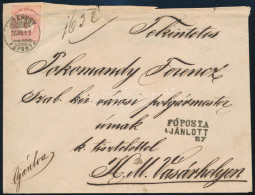 BUDAPEST
FŐPOSTA
Tekintetes
Pokomandy Ferencz
Szab. kir városi polgármester
úrnak
FŐPOSTA
AJÁNLOTT
k. tisztelettel
Ajánlva
H. M. Vásárhelyen